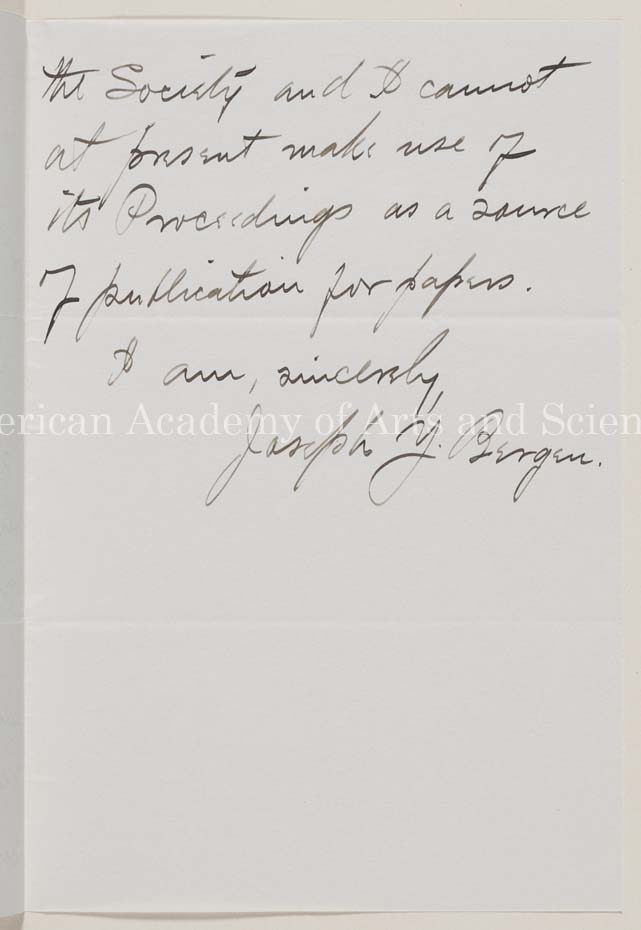 the Society and I cannot
at present make use of
its Proceedings as a source
of publication for papers.
I am, sincerely
erican Academy of Arts and Scien
Joseph Y. Bergen.